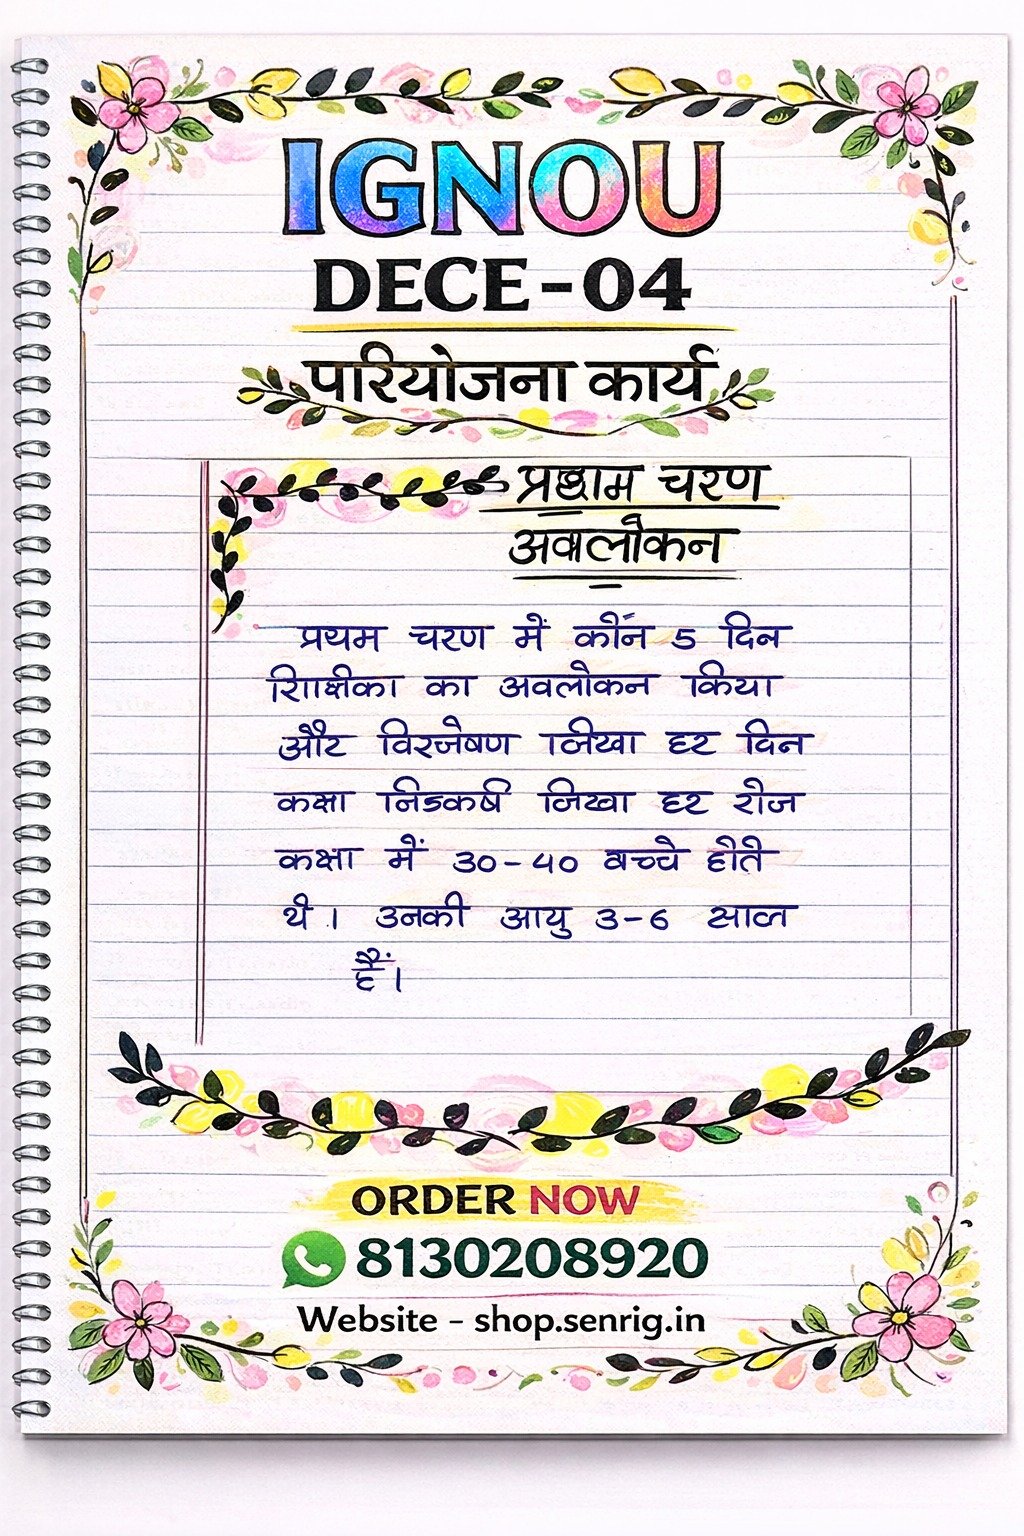 IGNOU
DECE-04
परियोजना कार्य
चरण
अवलोकन
प्रथम चरण में कॉन 5 दिन
का अवलोकन किया
और हर दिन
कक्षा लिखा हर रोज
कक्षा में 30-40 बच्चे होते
थे। उनकी आयु 3-6 साल
हैं।
ORDER NOW
8130208920
Website - shop.senrig.in